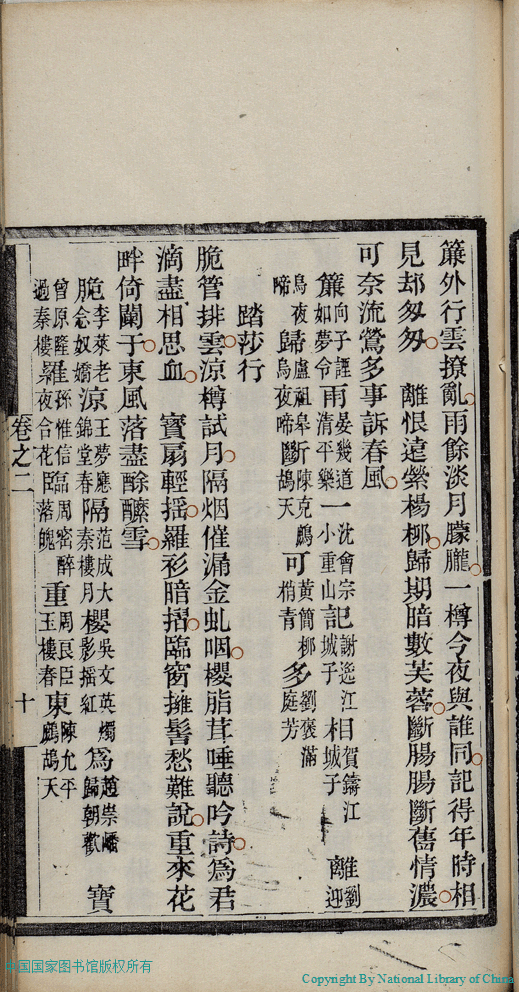 簾外行雲撩亂雨餘淡月朦朧一樽今夜與誰同記得年時相
見却匆匆　離恨遠縈楊柳歸期暗數芙蓉斷腸腸斷舊情濃
可奈流鶯多事訴春風
簾向子諲如夢令雨晏幾道清平樂一沈會宗小重山記謝逸江城子相賀鑄江城子離劉迎
烏夜啼歸盧祖皋烏夜啼斷陳克鷓鴣天可黃簡柳梢青多劉褒滿庭芳
踏莎行
脆管排雲涼樽試月隔烟催漏金虬咽櫻脂茸唾聽吟詩爲君
滴盡相思血　寶扇輕搖羅衫暗摺臨窗擁髻愁難說重來花
畔倚闌干東風落盡酴醾雪
脆李萊老念奴嬌涼王夢應錦堂春隔范成大秦樓月櫻吳文英燭影搖紅爲趙崇嶓歸朝歡寶
曾原隆過秦樓羅孫惟信夜合花臨周密醉落魄重周良臣玉樓春東陳允平鷓鴣天
卷之二
十
中国国家图书馆版权所有
Copyright By National Library of China